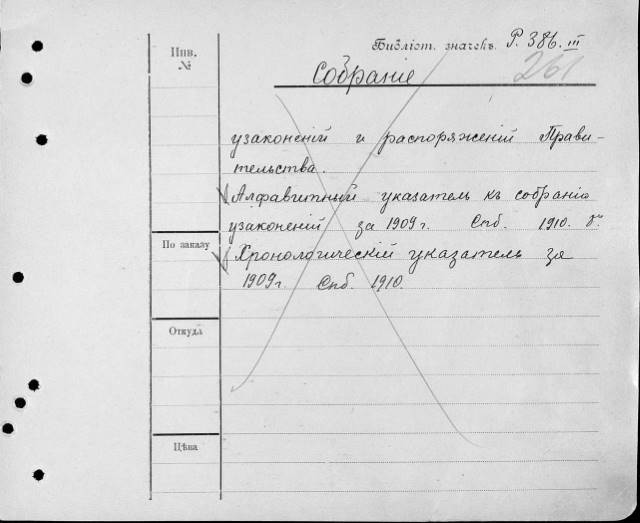 Инв. №
Библіот. значекъ. Р. 386. III
261
Собраніе
узаконеній и распоряженій Прави-
тельства.
Алфавитный указатель къ собранію
узаконеній за 1909 г. Спб. 1910.
По заказу
Хронологическій указатель за
1909 г. Спб. 1910.
Откуда
Цѣна